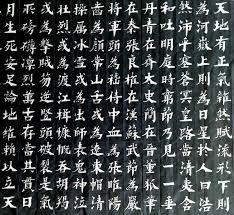 天地有正氣雜然賦流形下則
為河嶽上則為日星於人曰浩
然沛乎塞蒼冥皇路當清夷含
和吐明庭時窮節乃見一一垂
丹青在齊太史簡在晉董狐筆
在秦張良椎在漢蘇武節為嚴
將軍頭為嵇侍中血為張睢陽
齒為顏常山舌或為遼東帽清
操厲冰雪或為出師表鬼神泣
壯烈或為渡江楫慷慨吞胡羯
或為擊賊笏逆豎頭破裂是氣
所磅礴凜烈萬古存當其貫日
月生死安足論地維賴以立天